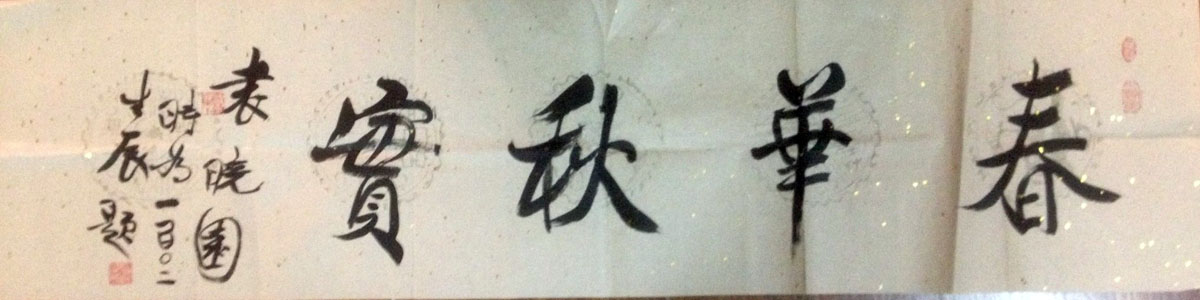 春華秋實
袁晓園
時為一百〇二
生辰題